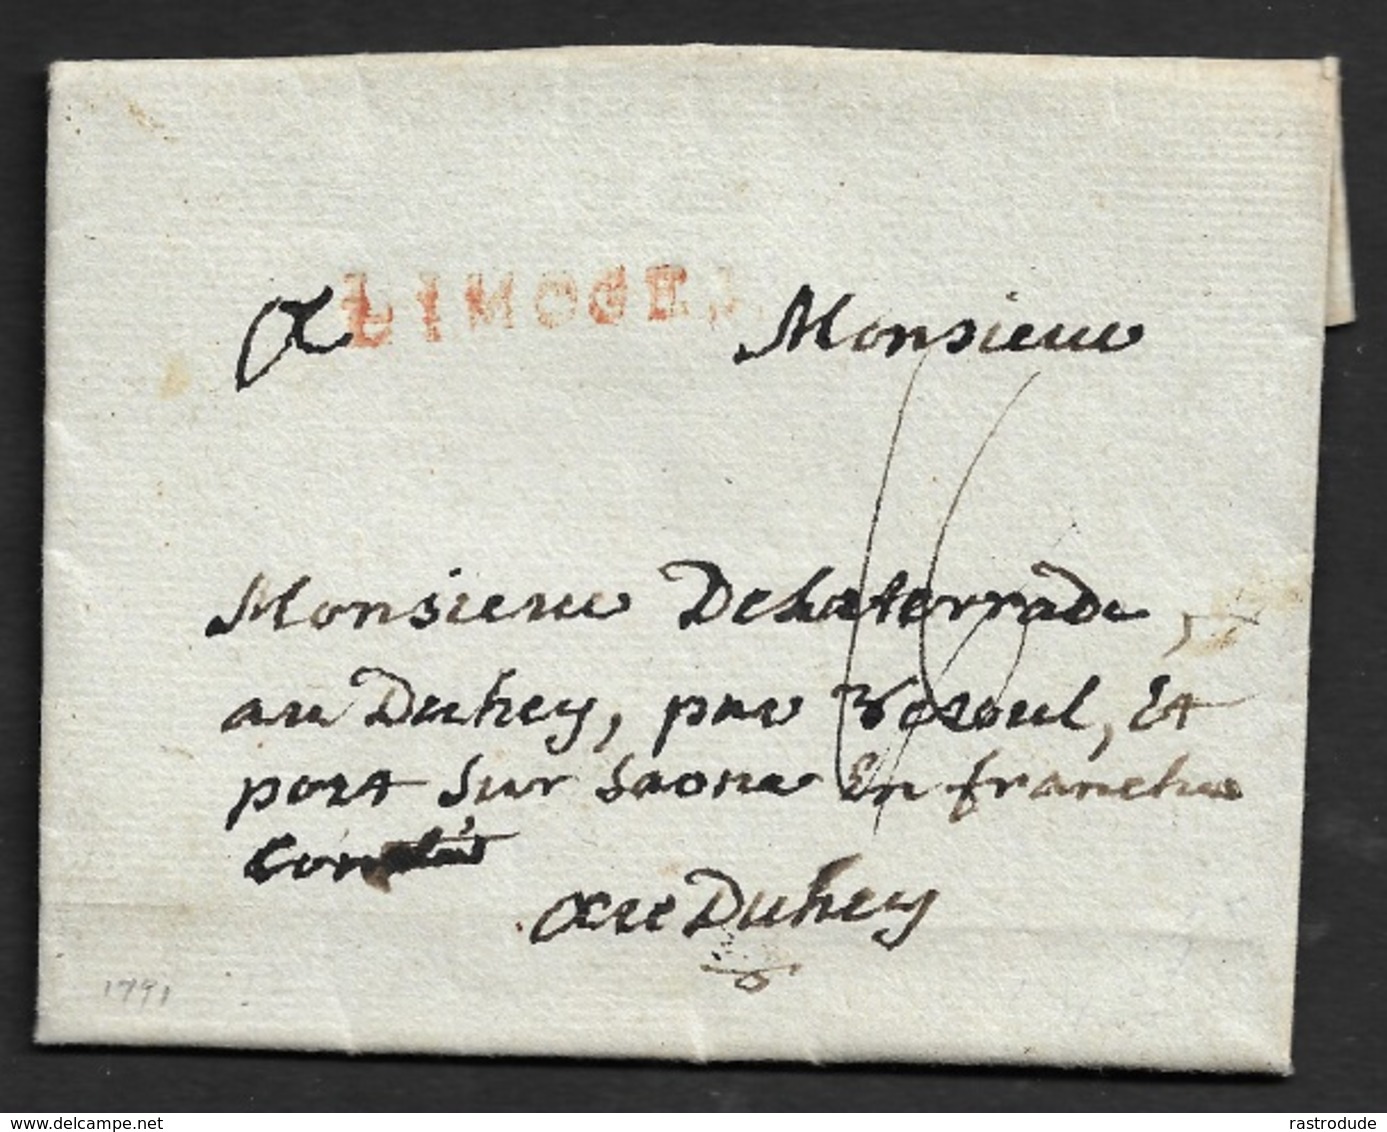 LIMOGES
A Monsieur
Monsieur Delaterrade,
au Duhey, par Vesoul, Et
port sur saone En franche
Comté
au Duhey
16
1791
delcampe.net
rastrodude